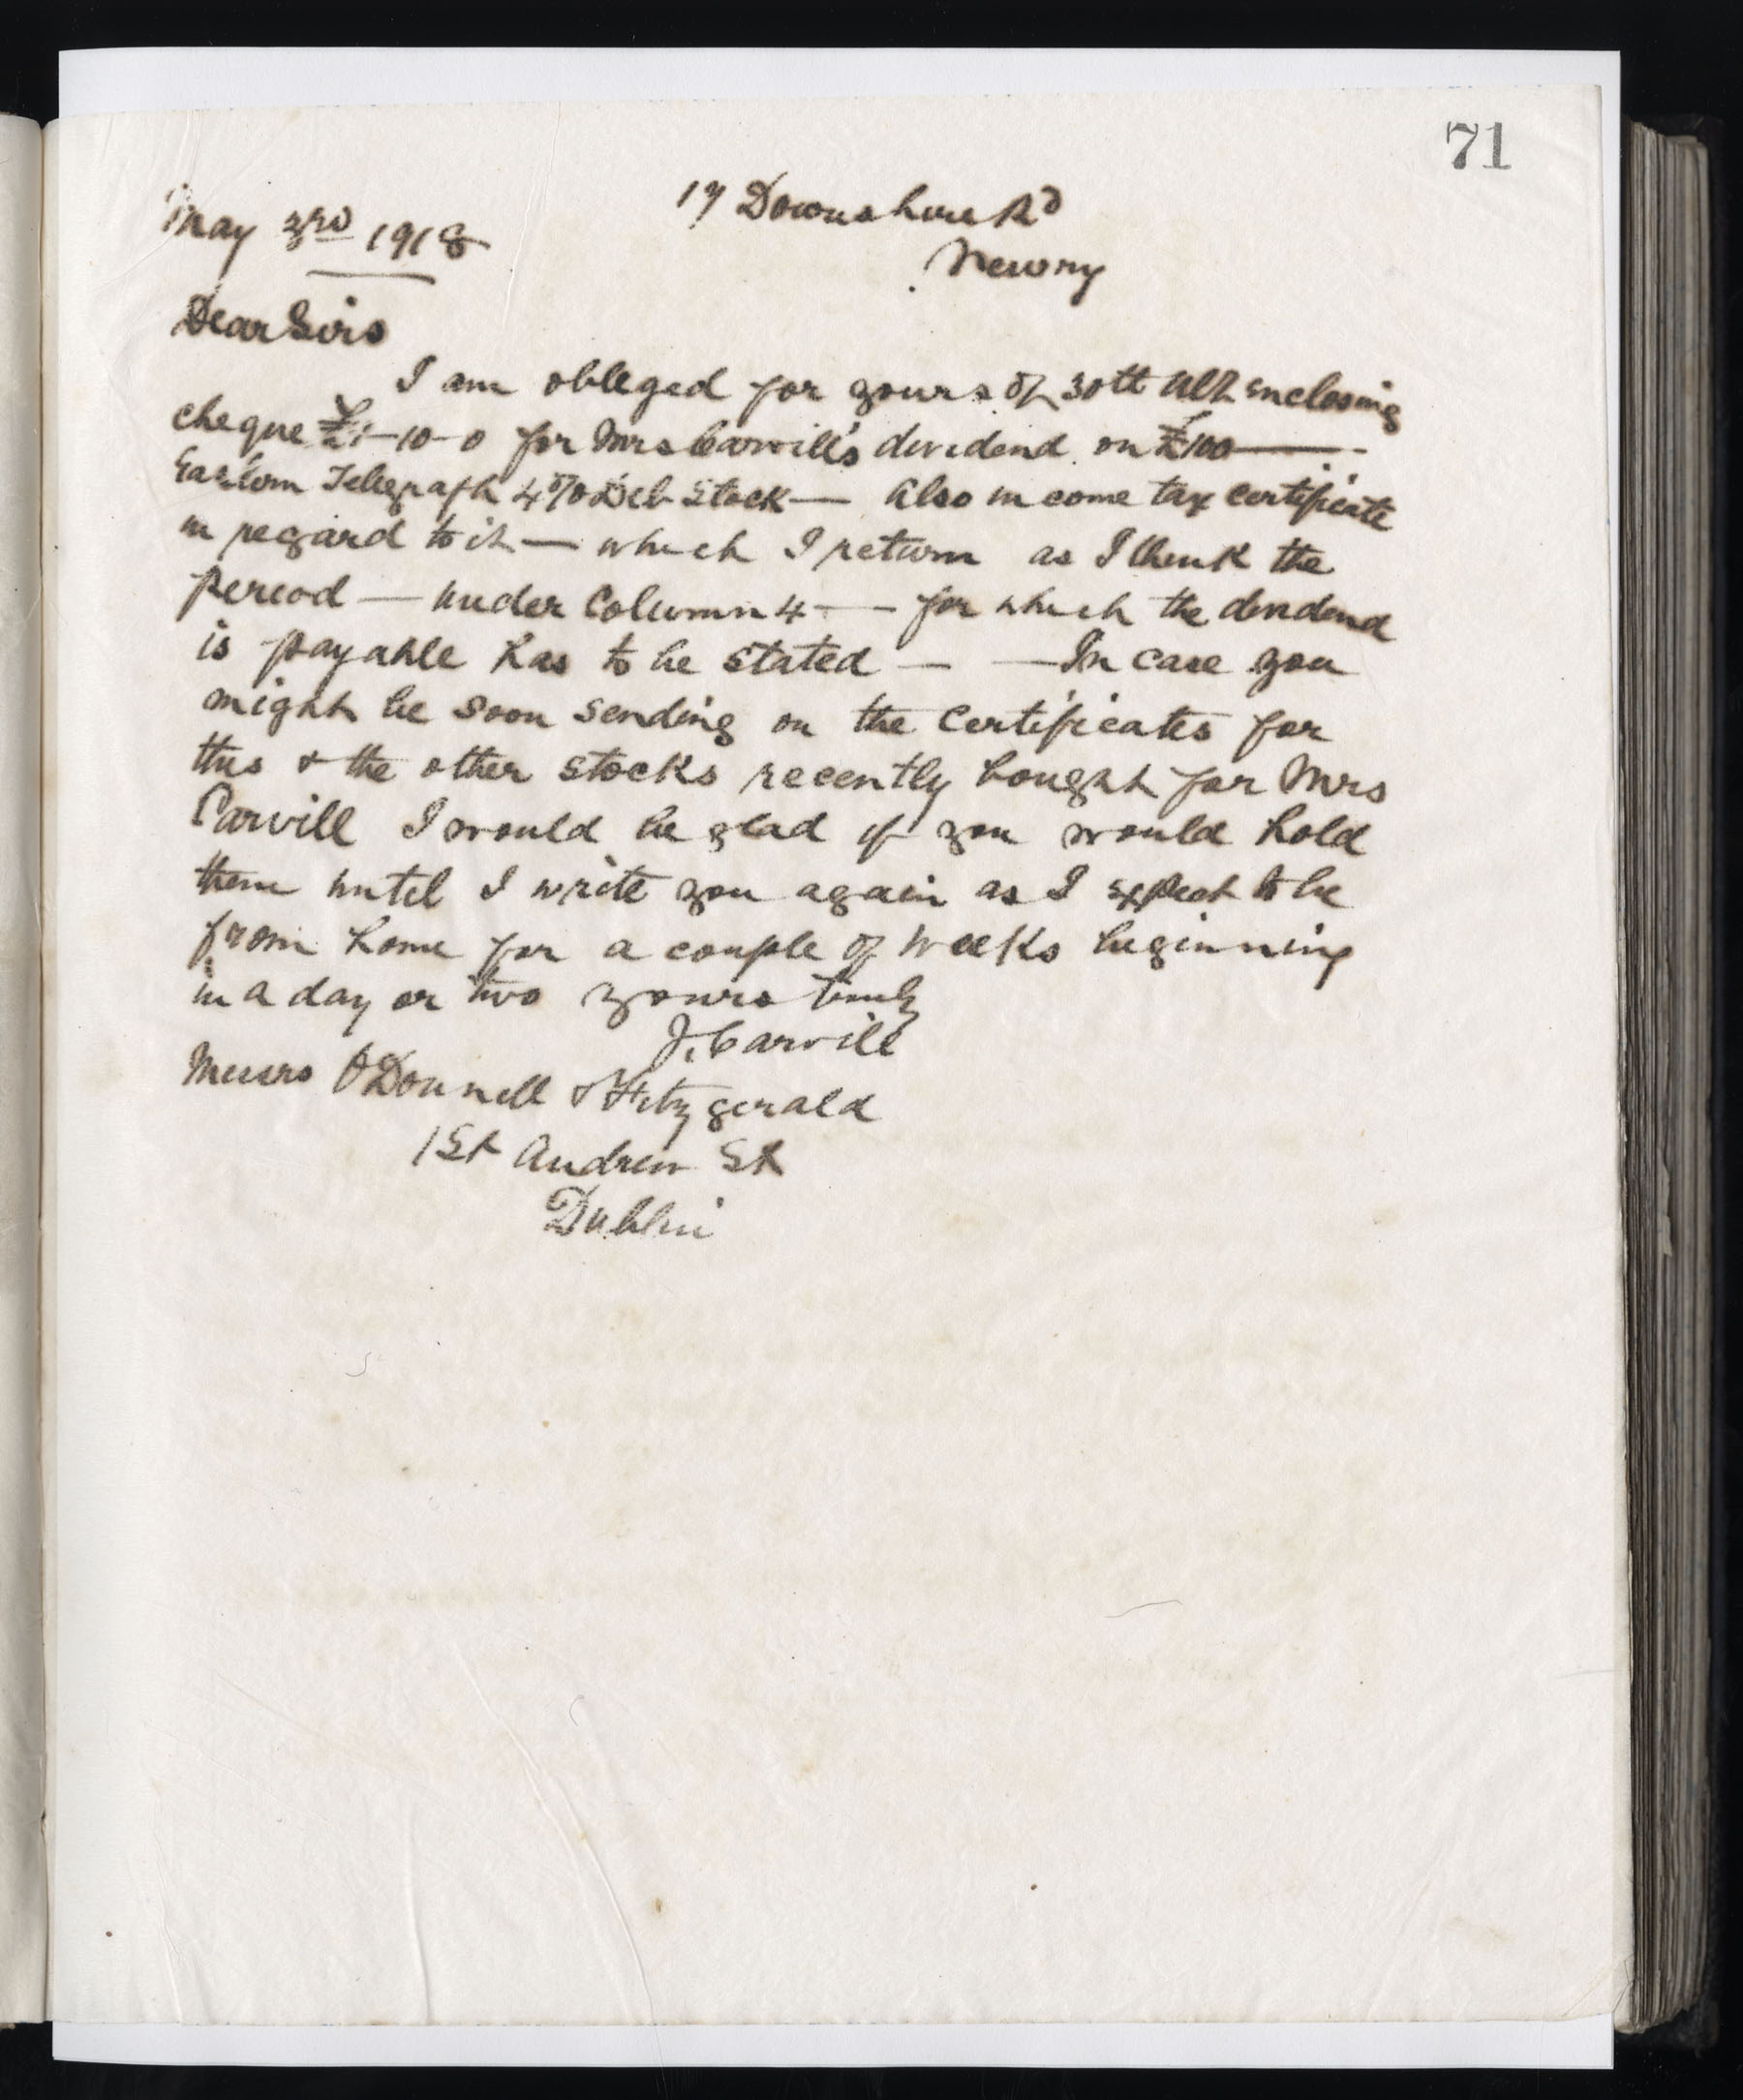 71
17 Downshire Rd
May 3rd 1918
Newry
Dear Sirs
I am obliged for yours of 30th Ult enclosing
cheque £1-10-0 for Mrs Carvill's dividend on £100 —
Eastern Telegraph 4% Deb Stock — Also income tax certificate
in regard to it — which I return as I think the
period — under Column 4 — for which the dividend
is payable has to be stated — — In case you
might be soon sending on the certificates for
this & the other stocks recently bought for Mrs
Carvill I would be glad if you would hold
them until I write you again as I expect to be
from home for a couple of weeks beginning
in a day or two yours truly
J. Carvill
Messrs O'Donnell & Fitzgerald
1 St Andrew St
Dublin